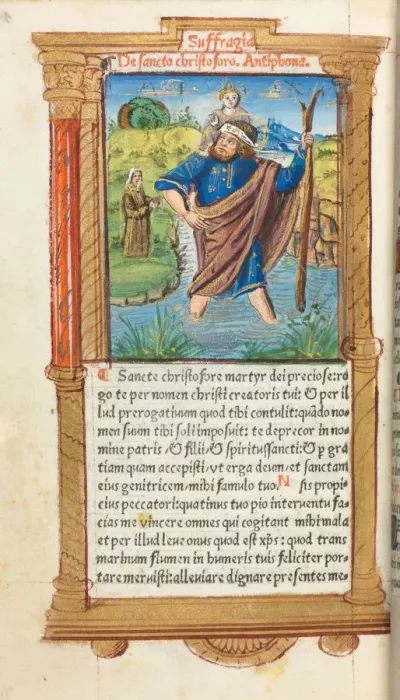 Suffragia
De sancto christoforo. Antiphona.
Sancte christofore martyr dei preciose: ro
go te per nomen christi creatoris tui: & per il
lud prerogatiuum quod tibi contulit: quādo no-
men suum tibi soli imposuit: te deprecor in no-
mine patris & filii & spiritussancti: & p gra
tiam quam accepisti vt erga deum et sanctam
eius genitricem mihi famulo tuo. N sis propi-
cius peccatori: quatinus tuo pio interuentu fa-
cias me vincere omnes qui cogitant mihi mala
et per illud leue onus quod est xp̄s: quod trans
marinum flumen in humeris tuis feliciter por-
tare meruisti: alleuiare dignare presentes me-